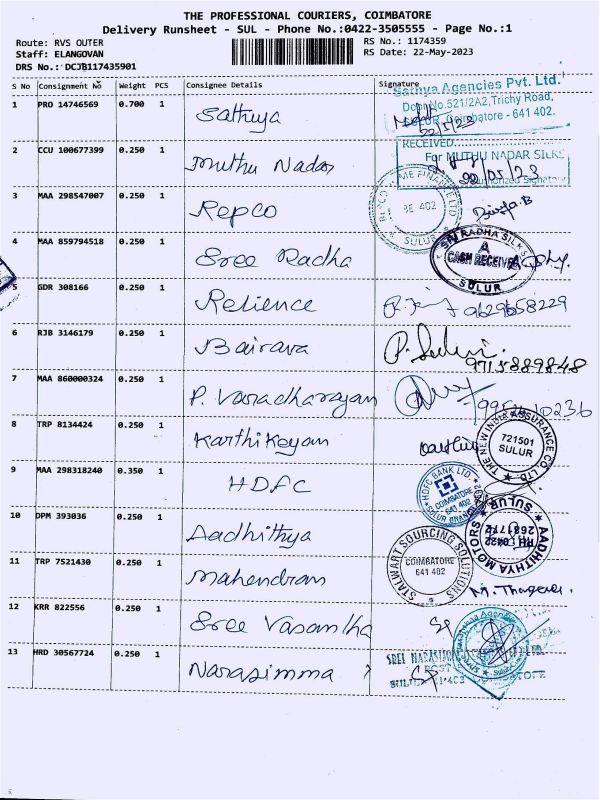 THE PROFESSIONAL COURIERS, COIMBATORE
Delivery Runsheet - SUL - Phone No.:0422-3505555 - Page No.:1
Route: RVS OUTER
Staff: ELANGOVAN
DRS No.: DCJB117435901
RS No.: 1174359
RS Date: 22-May-2023
S No Consignment No Weight PCS Consignee Details Signature
1 PRO 14746569 0.700 1 Sathya
Sathya Agencies Pvt. Ltd.
Door No.521/2A2,Trichy Road,
SULUR, Coimbatore - 641 402.
22/5/23
2 CCU 100677399 0.250 1 muthu Nadar
RECEIVED
For MUTHU NADAR SILKS
22/05/23
Authorized Signatory
3 MAA 298547007 0.250 1 Repco
REPCO HOME FINANCE LTD
SULUR
Divya.B
4 MAA 859794518 0.250 1 Sree Radha
SRI RADHA SILKS
CASH RECEIVED
SULUR
5 GDR 308166 0.250 1 Relience
9629658229
6 RJB 3146179 0.250 1 Bairava
9715889848
7 MAA 860000324 0.250 1 P. Varadharayan
8 TRP 8134424 0.250 1 Karthikeyan
THE NEW INDIA ASSURANCE CO. LTD.
721501
SULUR
9 MAA 298318240 0.350 1 HDFC
HDFC BANK LTD.
COIMBATORE
641 402
SULUR BRANCH
10 DPM 393036 0.250 1 Aadhithya
AADHITHYA MOTORS
SULUR
11 TRP 7521430 0.250 1 Mahendran
STALWART SOURCING SOLUTIONS
COIMBATORE
641 402
12 KRR 822556 0.250 1 Sree Vasantha
13 HRD 30567724 0.250 1 Narasimma